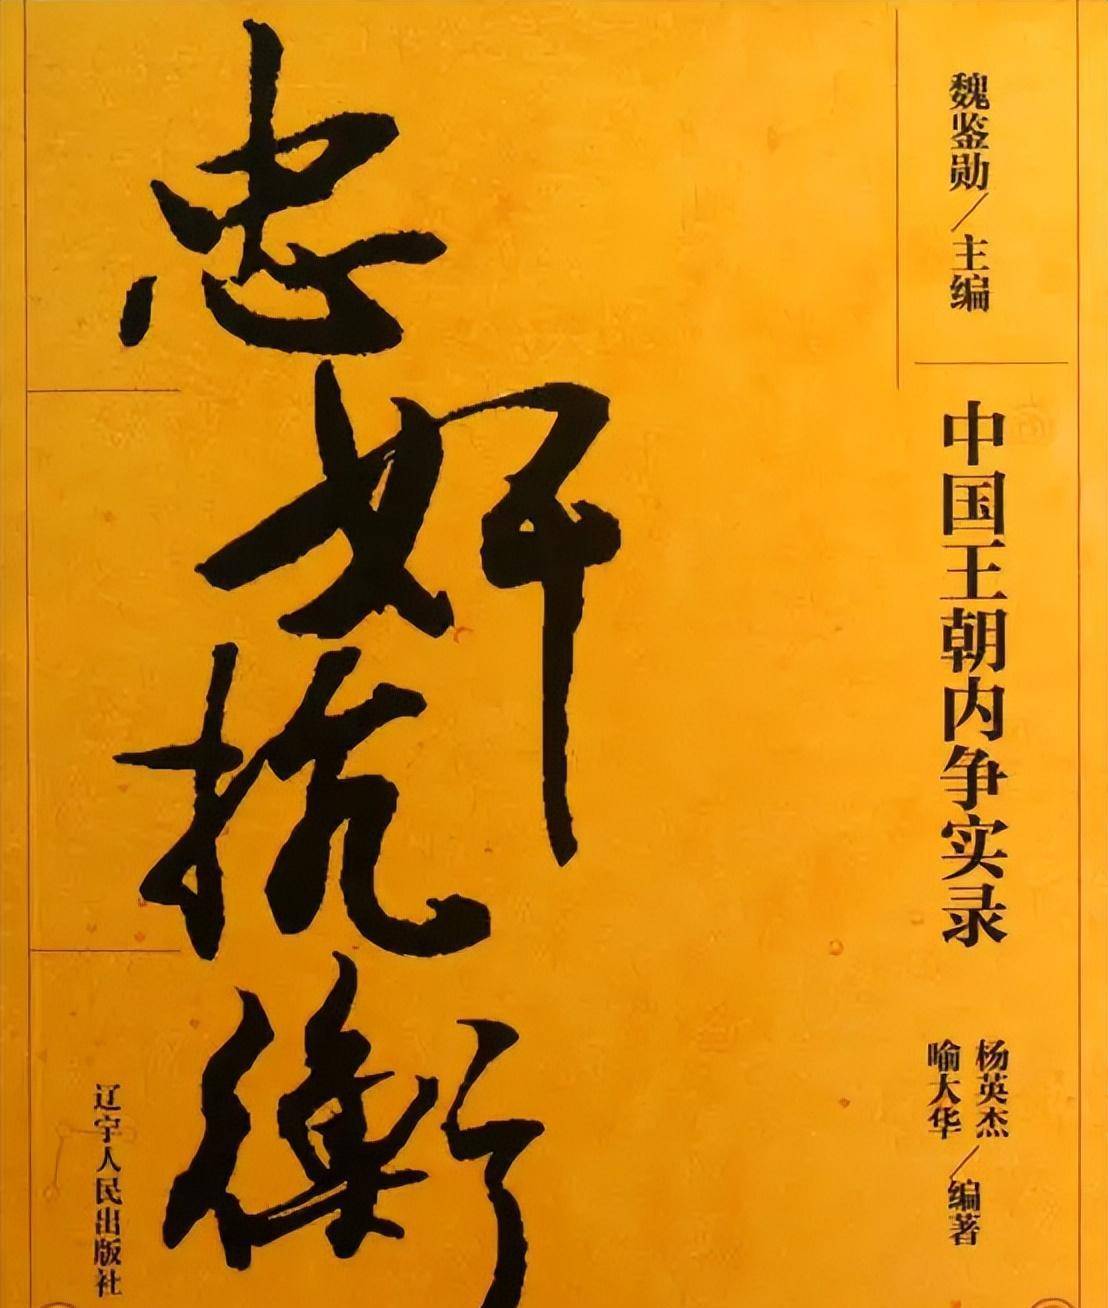 魏鉴勋/主编
中国王朝内争实录
杨英杰
喻大华/编著
忠奸抗衡
辽宁人民出版社